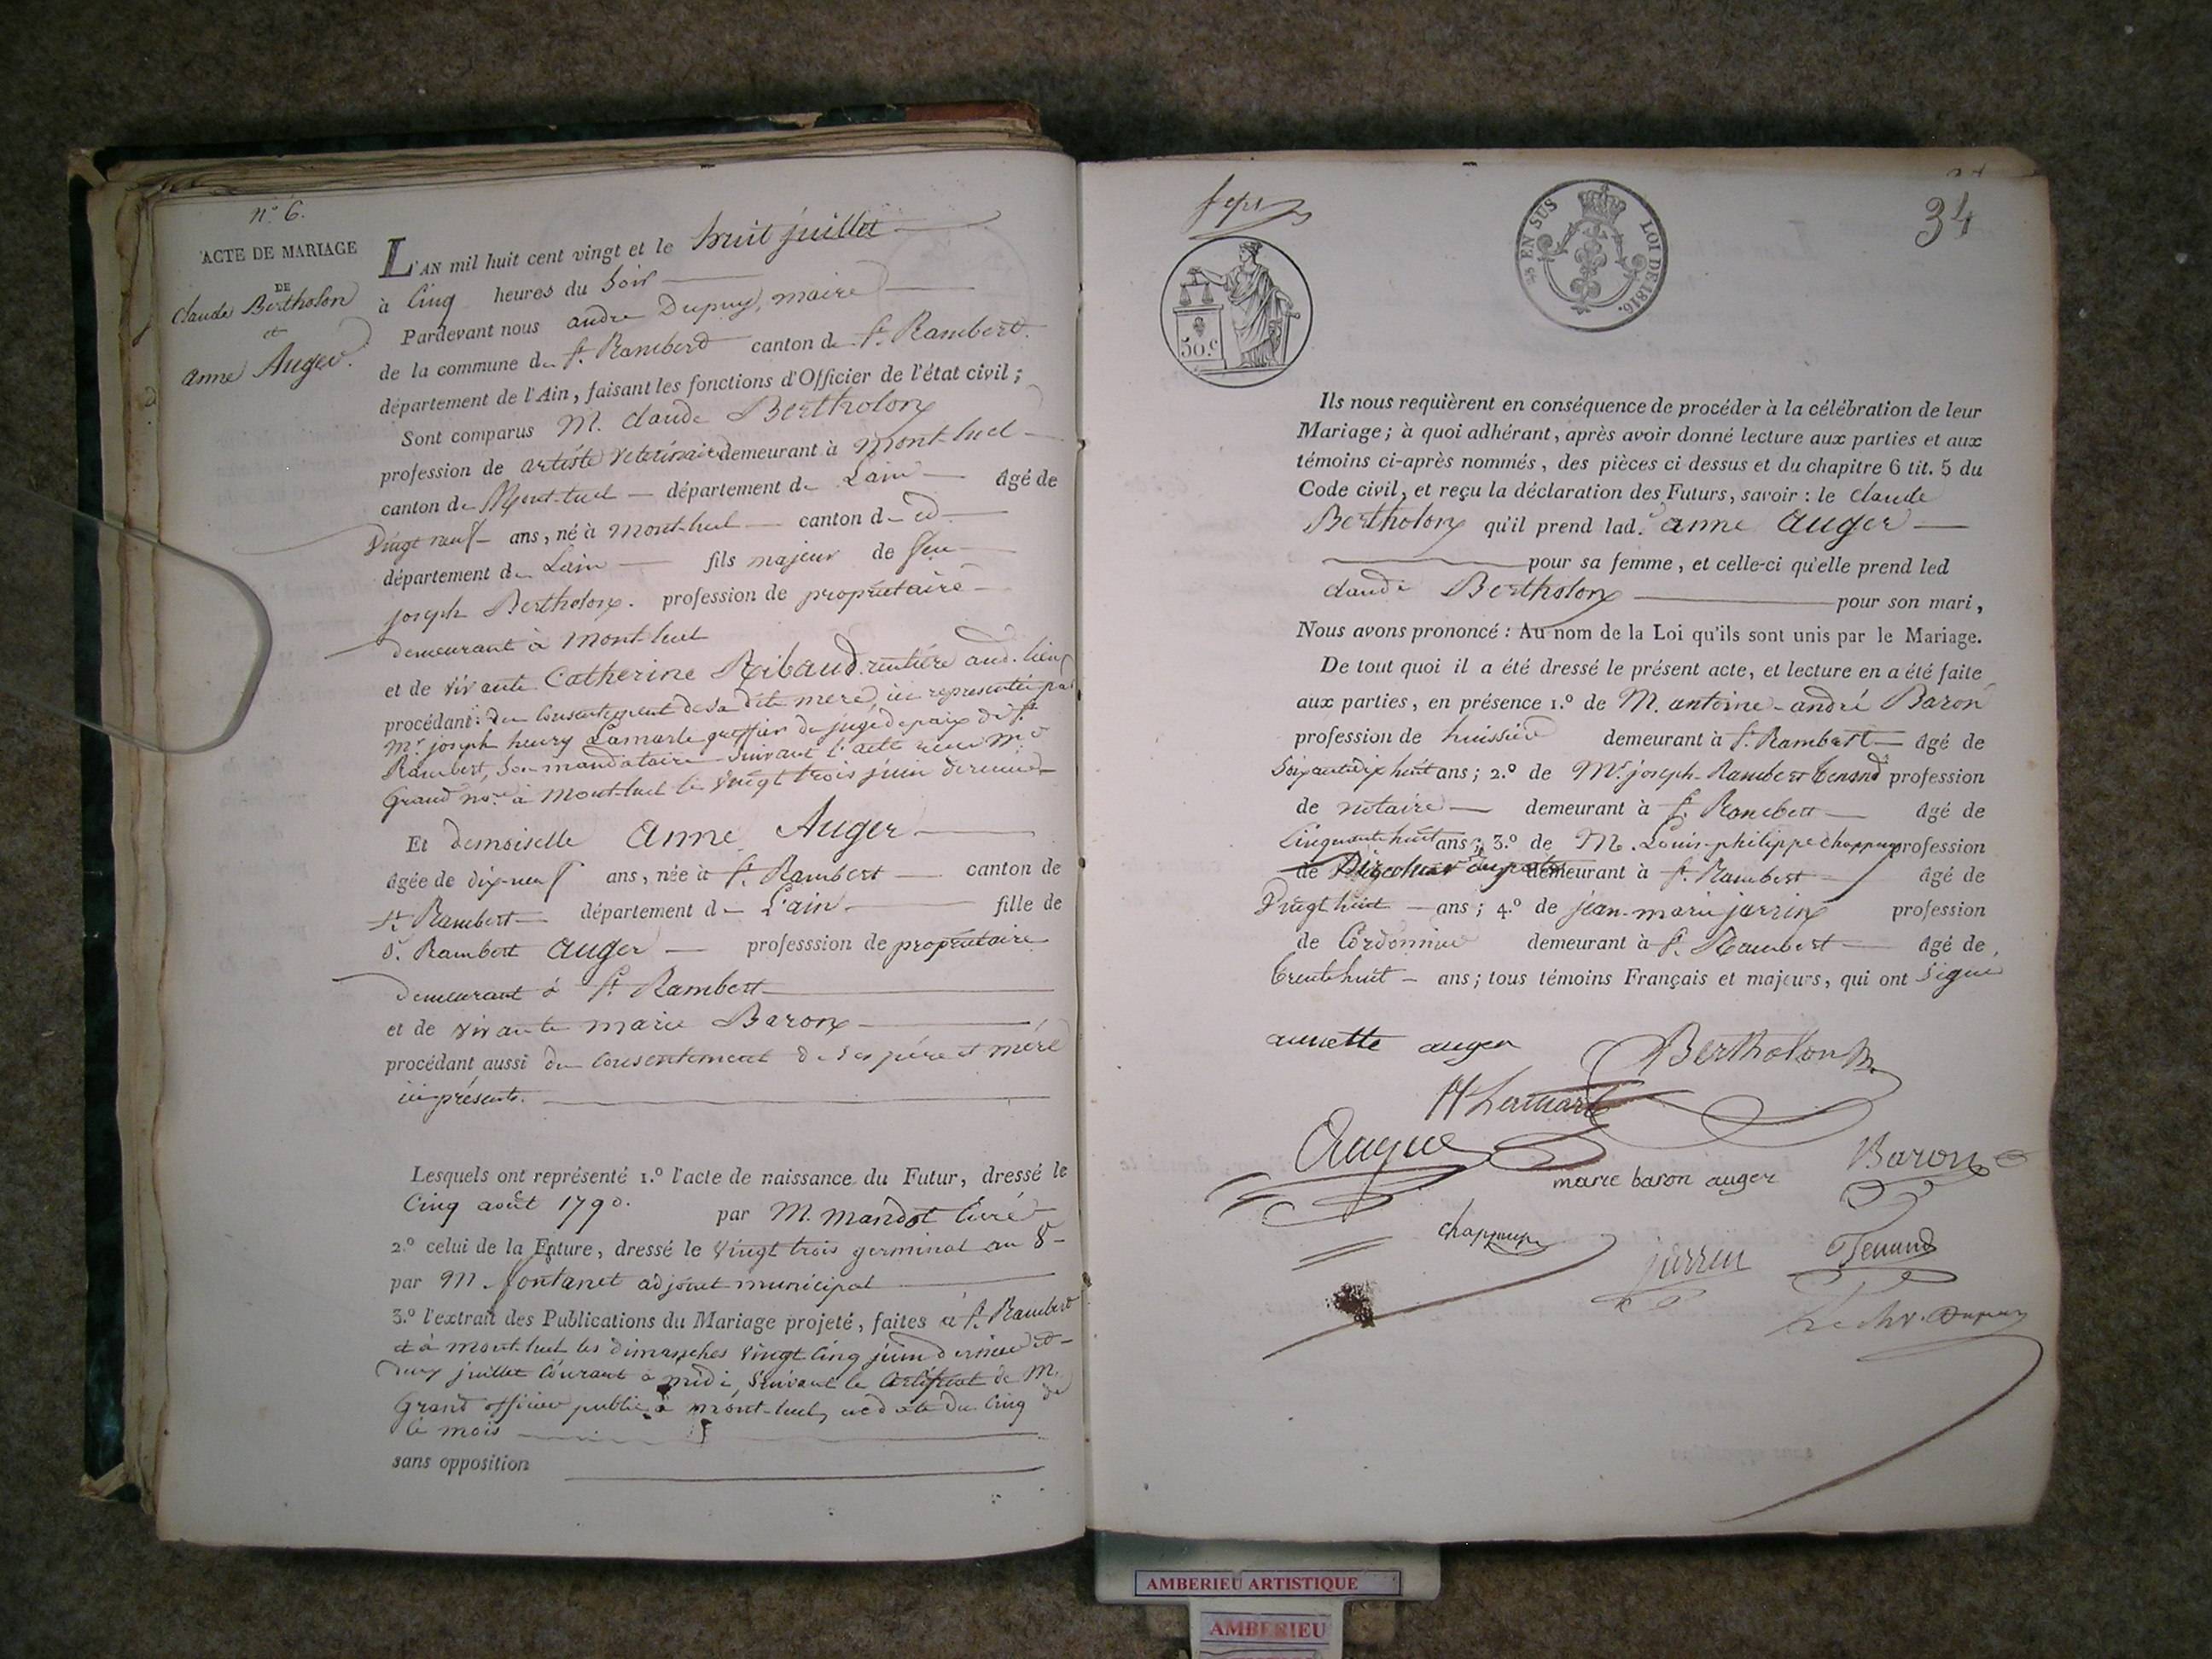 n.o 6.
ACTE DE MARIAGE
DE
Claude Bertholon
et
anne Auger.
L'AN mil huit cent vingt et le huit juillet
à Cinq heures du Soir
Pardevant nous andre Dupuy, maire
de la commune de St. Rambert canton de St. Rambert.
département de l'Ain, faisant les fonctions d'Officier de l'état civil ;
Sont comparus M. Claude Bertholon
profession de artiste veterinaire demeurant à Mont-luel
canton de Mont-luel département de Lain âgé de
Vingt neuf ans, né à Mont-luel canton de id
département de Lain fils majeur de feu
joseph Bertholon. profession de propriétaire
demeurant à Mont-luel
et de vivante Catherine Ribaud rentière aud. lieu
procédant : du Consentement de sa dite mere, ici representée par
Mr. joseph henry Lamarle greffier du juge de paix de St.
Rambert, Son mandataire Suivant l'acte recu Me
Grand nore. à Mont-luel le vingt trois juin dernier
Et demoiselle Anne Auger
âgée de dix-neuf ans, née à St. Rambert canton de
St. Rambert département de L'ain fille de
Sr. Rambert Auger professsion de propriétaire
demeurant à St. Rambert
et de vivante marie Baron
procédant aussi du Consentement de ses père et mère
ici présents.
Lesquels ont représenté 1.o l'acte de naissance du Futur, dressé le
Cinq août 1790. par M. Mandot Curé
2.o celui de la Future, dressé le vingt trois germinal an 8
par M. fontanet adjoint municipal
3.o l'extrait des Publications du Mariage projeté, faites à St. Rambert
et à Mont-luel les dimanches vingt Cinq juin dernier et
deux juillet Courant à midi, Suivant le Certificat de M.
Grand officier public à Mont-luel, en date du Cinq de
Ce mois
sans opposition
34
25 EN SUS LOI DE 1816.
50.c
Ils nous requièrent en conséquence de procéder à la célébration de leur
Mariage ; à quoi adhérant, après avoir donné lecture aux parties et aux
témoins ci-après nommés, des pièces ci dessus et du chapitre 6 tit. 5 du
Code civil, et reçu la déclaration des Futurs, savoir : le Claude
Bertholon qu'il prend lad.e anne Auger
pour sa femme, et celle-ci qu'elle prend led
Claude Bertholon pour son mari,
Nous avons prononcé : Au nom de la Loi qu'ils sont unis par le Mariage.
De tout quoi il a été dressé le présent acte, et lecture en a été faite
aux parties, en présence 1.o de M. antoine-andré Baron
profession de huissier demeurant à St. Rambert âgé de
Soixante dix huit ans ; 2.o de Mr. joseph-Rambert Tenand profession
de notaire demeurant à St. Rambert âgé de
Cinquante huit ans ; 3.o de M. Louis-philippe Chappuy profession
de Directeur des postes demeurant à St. Rambert âgé de
Vingt huit ans ; 4.o de jean-marie jarrin profession
de Cordonnier demeurant à St. Rambert âgé de
Trente huit ans ; tous témoins Français et majeurs, qui ont Signé
annette auger
Bertholon
Lamarle
Auger
Baron
marie baron auger
Chappuy
jarrin
Tenand
Dupuy
AMBERIEU ARTISTIQUE
AMBERIEU